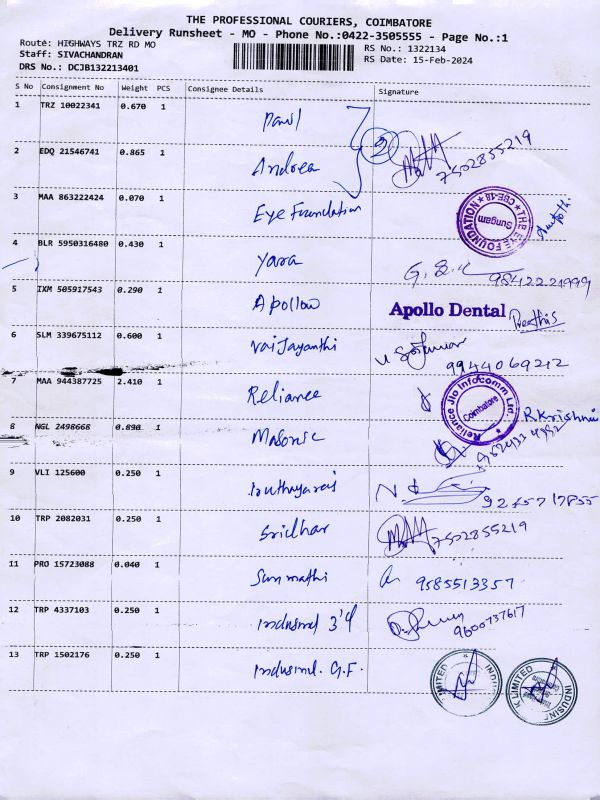 THE PROFESSIONAL COURIERS, COIMBATORE
Delivery Runsheet - MO - Phone No.:0422-3505555 - Page No.:1
Route: HIGHWAYS TRZ RD MO
Staff: SIVACHANDRAN
DRS No.: DCJB132213401
RS No.: 1322134
RS Date: 15-Feb-2024
S No Consignment No Weight PCS Consignee Details Signature
1 TRZ 10022341 0.670 1 Paul
2
7502855219
2 EDQ 21546741 0.865 1 Andrea
3 MAA 863222424 0.070 1 Eye Foundation
THE EYE FOUNDATION CBE-18 Sungam
4 BLR 5950316480 0.430 1 Yara
9842221999
5 IXM 505917543 0.290 1 Apollow Apollo Dental Preethis
6 SLM 339675112 0.600 1 Vaijayanthi
9944069212
7 MAA 944387725 2.410 1 Reliance Reliance Jio Infocomm Ltd. Coimbatore
8 NGL 2498668 0.890 1 Masonic
9 VLI 125600 0.250 1
10 TRP 2082031 0.250 1 Sridhar 7502855219
11 PRO 15723088 0.040 1 Sanmathi 9585513357
12 TRP 4337103 0.250 1 Indusind 3'd 9600737617
13 TRP 1502176 0.250 1 Indusind. G.F.
LIMITED INDUS
LIMITED INDUSIN